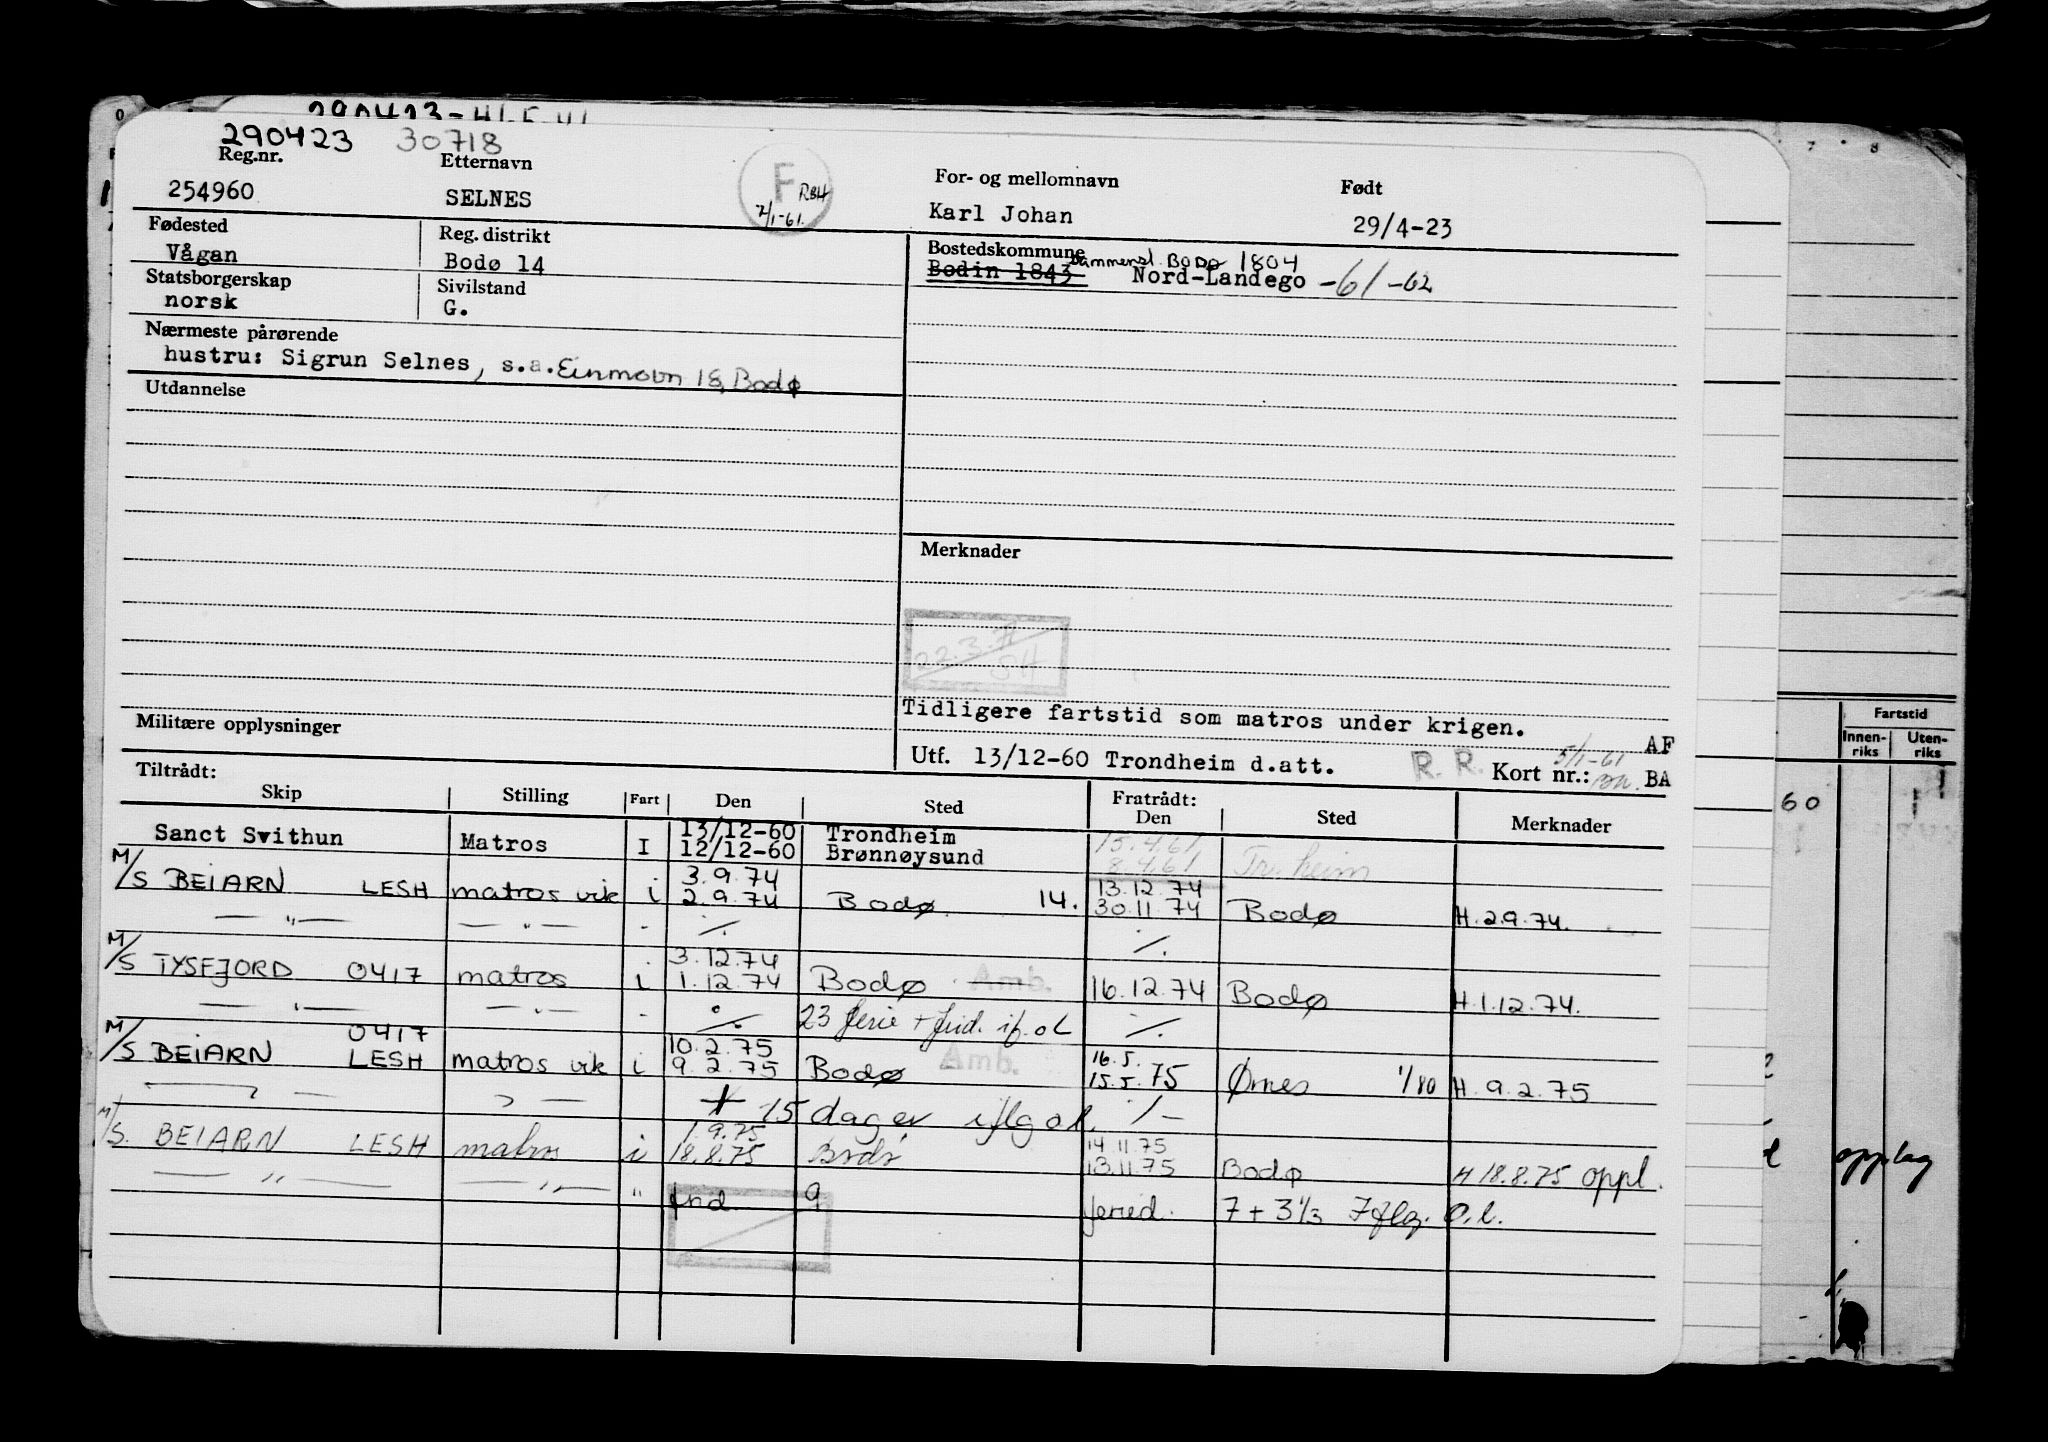 290423 30718
Reg.nr. Etternavn For- og mellomnavn Født
254960 SELNES F RBH 7/1-61. Karl Johan 29/4-23
Fødested Reg. distrikt Bostedskommune
Vågan Bodø 14 Bodin 1843 Bodø 1804 Nord-Landego -61 -62
Statsborgerskap Sivilstand
norsk G.
Nærmeste pårørende
hustru: Sigrun Selnes, s.a. 18, Bodø
Utdannelse
Merknader
22.3.
Tidligere fartstid som matros under krigen.
Militære opplysninger
AF
Utf. 13/12-60 Trondheim d.att. R. R. Kort nr.: 5/1-61 BA
Tiltrådt: Fratrådt:
Skip Stilling Fart Den Sted Den Sted Merknader
Sanct Svithun Matros I 13/12-60 Trondheim 15.4.61 Tr.heim
12/12-60 Brønnøysund 8.4.61
M/S BEIARN LESH matros vik i 3.9.74 Bodø 14. 13.12.74 Bodø H.2.9.74.
2.9.74 30.11.74
— " — — " — - ·/. ·/.
M/S TYSFJORD 0417 matros i 3.12.74 Bodø Amb. 16.12.74 Bodø H.1.12.74.
1.12.74
— " — — " — - ·/. 23 ferie + frid. if. ol ·/.
0417
M/S BEIARN LESH matros vik i 10.2.75 Bodø Amb. 16.5. Ørnes 1/80 H.9.2.75
9.2.75 15.5.75
+ 15 dager iflg ol. ·/-
M/S. BEIARN LESH matros i 1.9.75 Bodø 14.11.75 Bodø H 18.8.75 oppl.
18.8.75 13.11.75
— " — — " — " frid. 9 feried. 7 + 3 1/3 Iflg. O.l.
Fartstid
Innen-riks Uten-riks
60
opplag